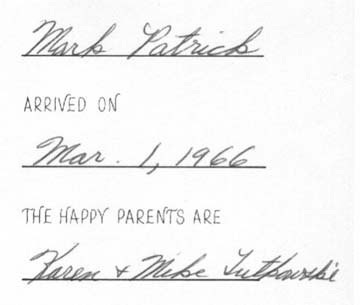 Mark Patrick
ARRIVED ON
Mar. 1, 1966
THE HAPPY PARENTS ARE
Karen + Mike Tutkowski